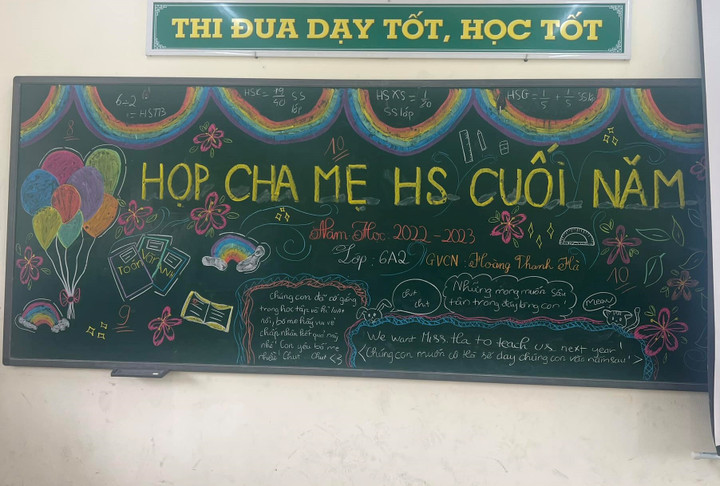 THI ĐUA DẠY TỐT, HỌC TỐT
HSXS = 1/20
SS lớp
HSG = 1/5 + 1/5 SS lớp
8
10
HỌP CHA MẸ HS CUỐI NĂM
Năm Học: 2022 - 2023
Lớp: 6A2 GVCN: Hoàng Thanh Hà
TOÁN VĂN ANH
9
10
Chúng con đã cố gắng
trong học tập và thi
nên, bố mẹ hãy vui vẻ
chấp nhận kết quả này
nhé! Con yêu bố mẹ
nhiều! Chut Chut <3
chut
chut
Những mong muốn sâu
tận trong đáy lòng con!
MEOW
We want Miss. Ha to teach us next year!
<Chúng con muốn cô Hà sẽ dạy chúng con vào năm sau!>